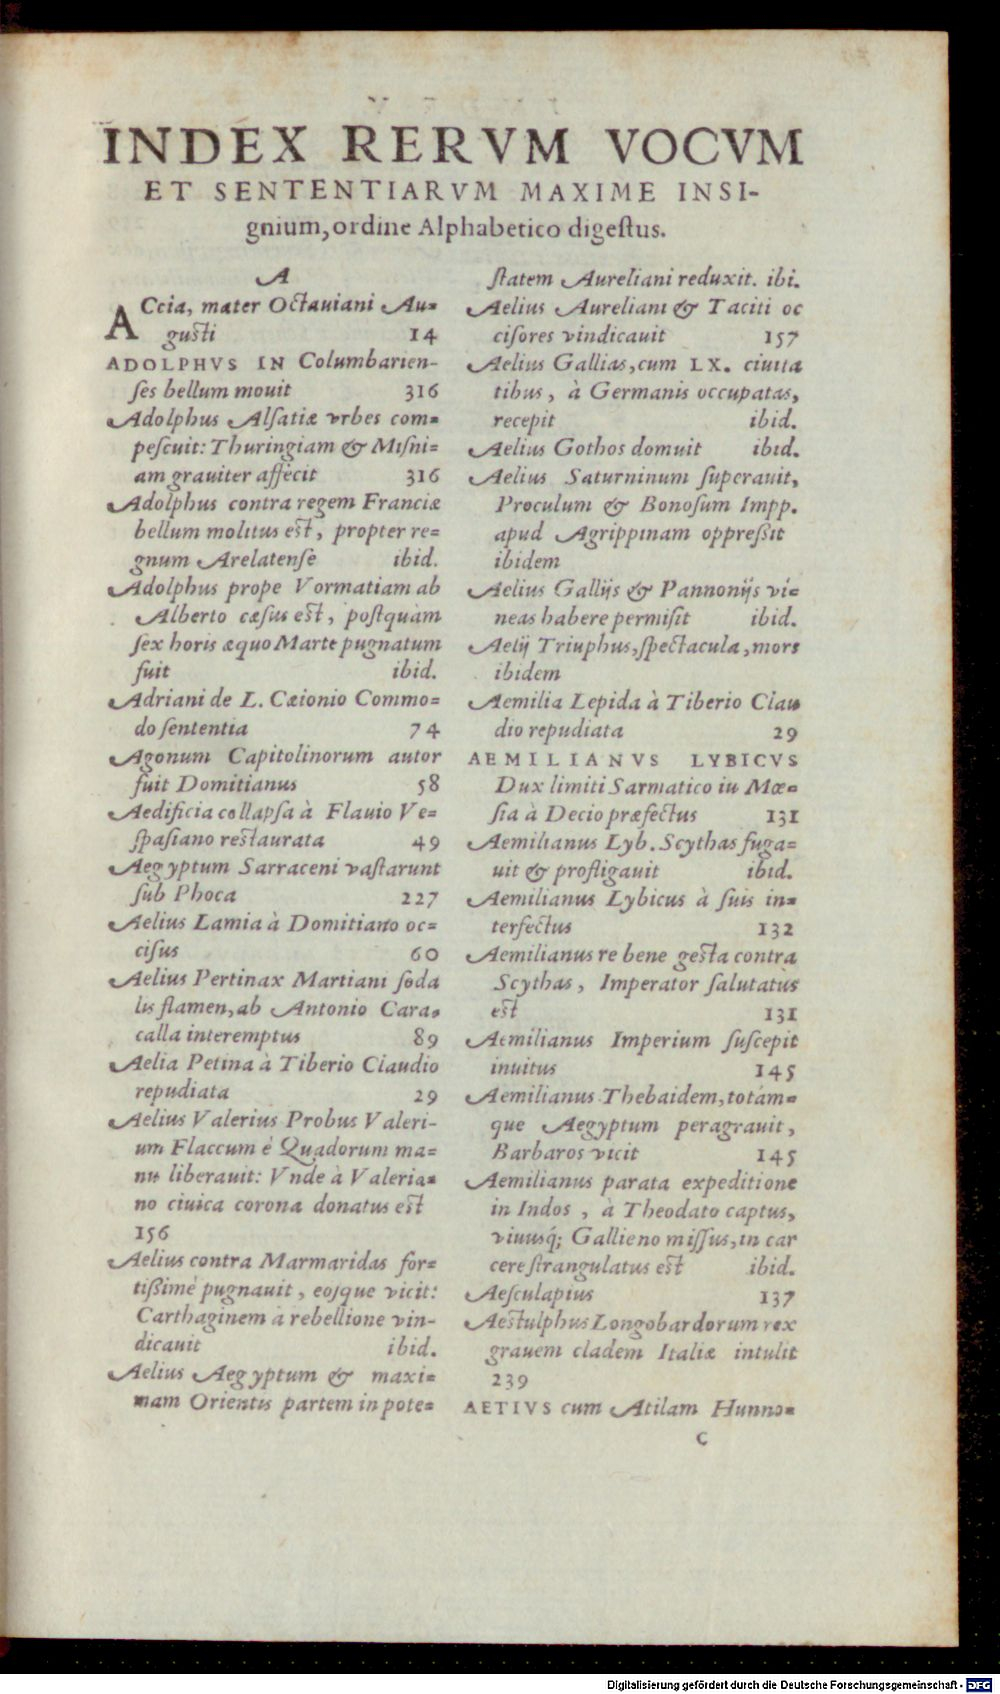 INDEX RERVM VOCVM
ET SENTENTIARVM MAXIME INSI-
gnium, ordine Alphabetico digestus.
A
ACcia, mater Octauiani Au-
gusti 14
ADOLPHVS IN Columbarien-
ses bellum mouit 316
Adolphus Alsatiæ vrbes com-
pescuit: Thuringiam & Misni-
am grauiter affecit 316
Adolphus contra regem Franciæ
bellum molitus est, propter re-
gnum Arelatense ibid.
Adolphus prope Vormatiam ab
Alberto cæsus est, postquàm
sex horis æquo Marte pugnatum
fuit ibid.
Adriani de L. Cæionio Commo-
do sententia 74
Agonum Capitolinorum autor
fuit Domitianus 58
Aedificia collapsa à Flauio Ve-
spasiano restaurata 49
Aegyptum Sarraceni vastarunt
sub Phoca 227
Aelius Lamia à Domitiano oc-
cisus 60
Aelius Pertinax Martiani soda
lis flamen, ab Antonio Cara-
calla interemptus 89
Aelia Petina à Tiberio Claudio
repudiata 29
Aelius Valerius Probus Valeri-
um Flaccum è Quadorum ma-
nu liberauit: Vnde à Valeria-
no ciuica corona donatus est
156
Aelius contra Marmaridas for-
tißimè pugnauit, eosque vicit:
Carthaginem a rebellione vin-
dicauit ibid.
Aelius Aegyptum & maxi-
mam Orientis partem in pote-
statem Aureliani reduxit. ibi.
Aelius Aureliani & Taciti oc
cisores vindicauit 157
Aelius Gallias, cum LX. ciuita
tibus, à Germanis occupatas,
recepit ibid.
Aelius Gothos domuit ibid.
Aelius Saturninum superauit,
Proculum & Bonosum Impp.
apud Agrippinam oppreßit
ibidem
Aelius Gallijs & Pannonijs vi-
neas habere permisit ibid.
Aelij Triuphus, spectacula, mors
ibidem
Aemilia Lepida à Tiberio Clau
dio repudiata 29
AEMILIANVS LYBICVS
Dux limiti Sarmatico iu Mœ-
sia à Decio præfectus 131
Aemilianus Lyb. Scythas fuga-
uit & profligauit ibid.
Aemilianus Lybicus à suis in-
terfectus 132
Aemilianus re bene gesta contra
Scythas, Imperator salutatus
est 131
Aemilianus Imperium suscepit
inuitus 145
Aemilianus Thebaidem, totám-
que Aegyptum peragrauit,
Barbaros vicit 145
Aemilianus parata expeditione
in Indos, à Theodato captus,
viuusq́; Gallieno missus, in car
cere strangulatus est ibid.
Aesculapius 137
Aestulphus Longobardorum rex
grauem cladem Italiæ intulit
239
AETIVS cum Atilam Hunno-
C
Digitalisierung gefördert durch die Deutsche Forschungsgemeinschaft - DFG